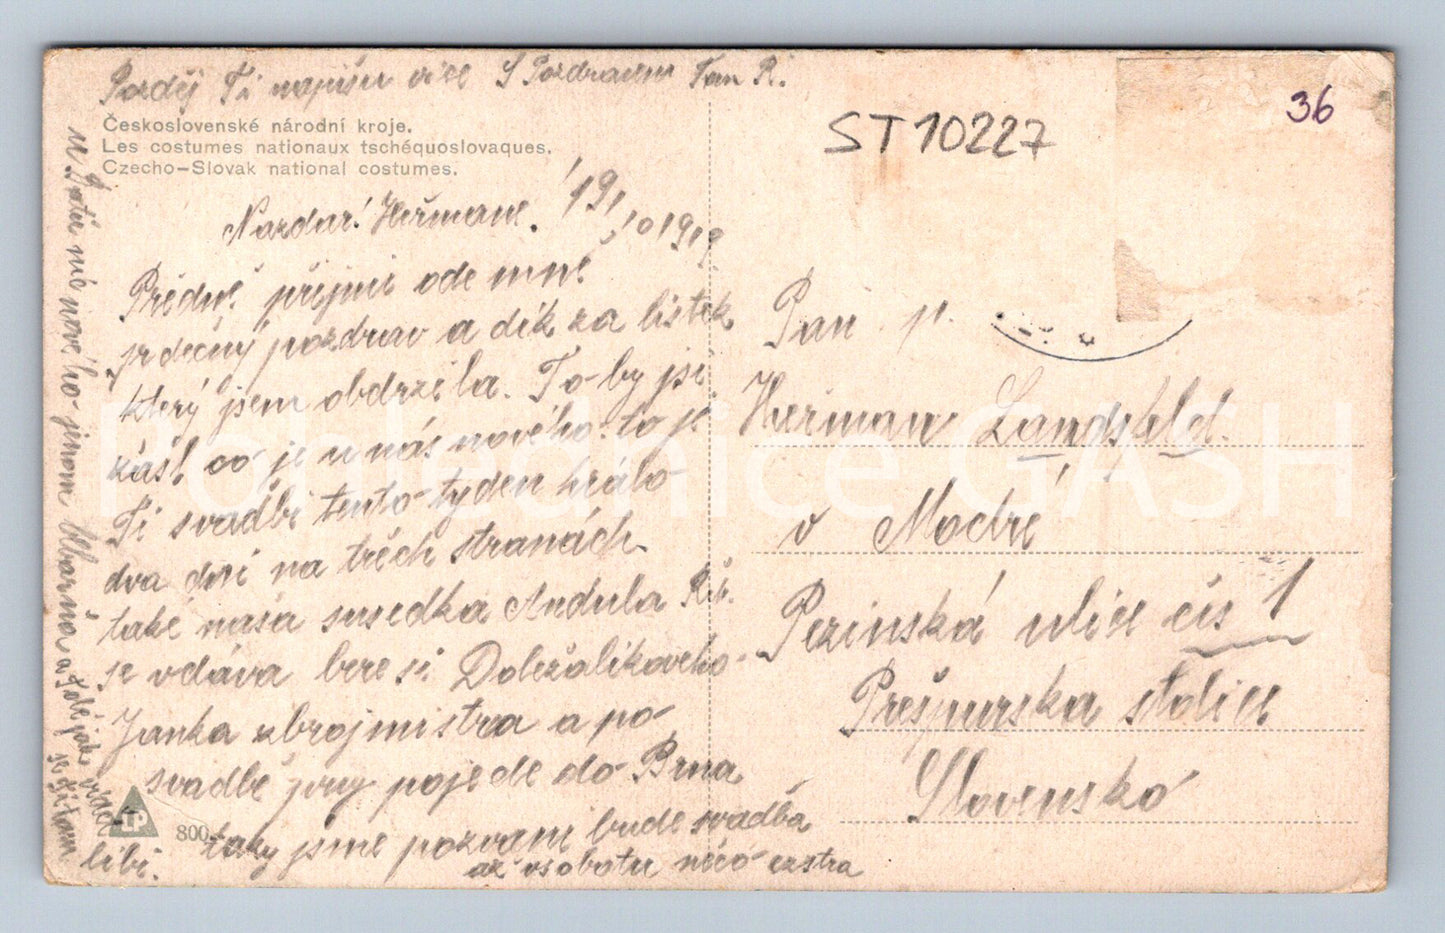 Pozděj Ti napíšu více S Pozdravem Fan R.
Československé národní kroje.
Les costumes nationaux tschéquoslovaques.
Czecho-Slovak national costumes.
Nazdar! Heřmane! 19/10 1919
Prědně přijmi ode mně
srdečný pozdrav a dík za lístek
který jsem obdrzila. To-by jsi
zásl co je u nás nového. to je
Ti svadbi tento tyden hrálo
dva dní na třéch stranách
také naša susedka Andula Řih.
se vdáva bere si Doležalikoveho
Janka zbrojmistra a po-
svadbě prý pojede do Brna
taky jsme pozvani bude svadba
až vsobotu něco extra
u Baťů nic nového-jenom
se
libi.
800
LP
ST 10227
36
Pan p.
Heřman Landsfeld.
v Modré
Pezinská ulice čís 1
Prešpurska stolice
Slovensko
Pohlednice GASH